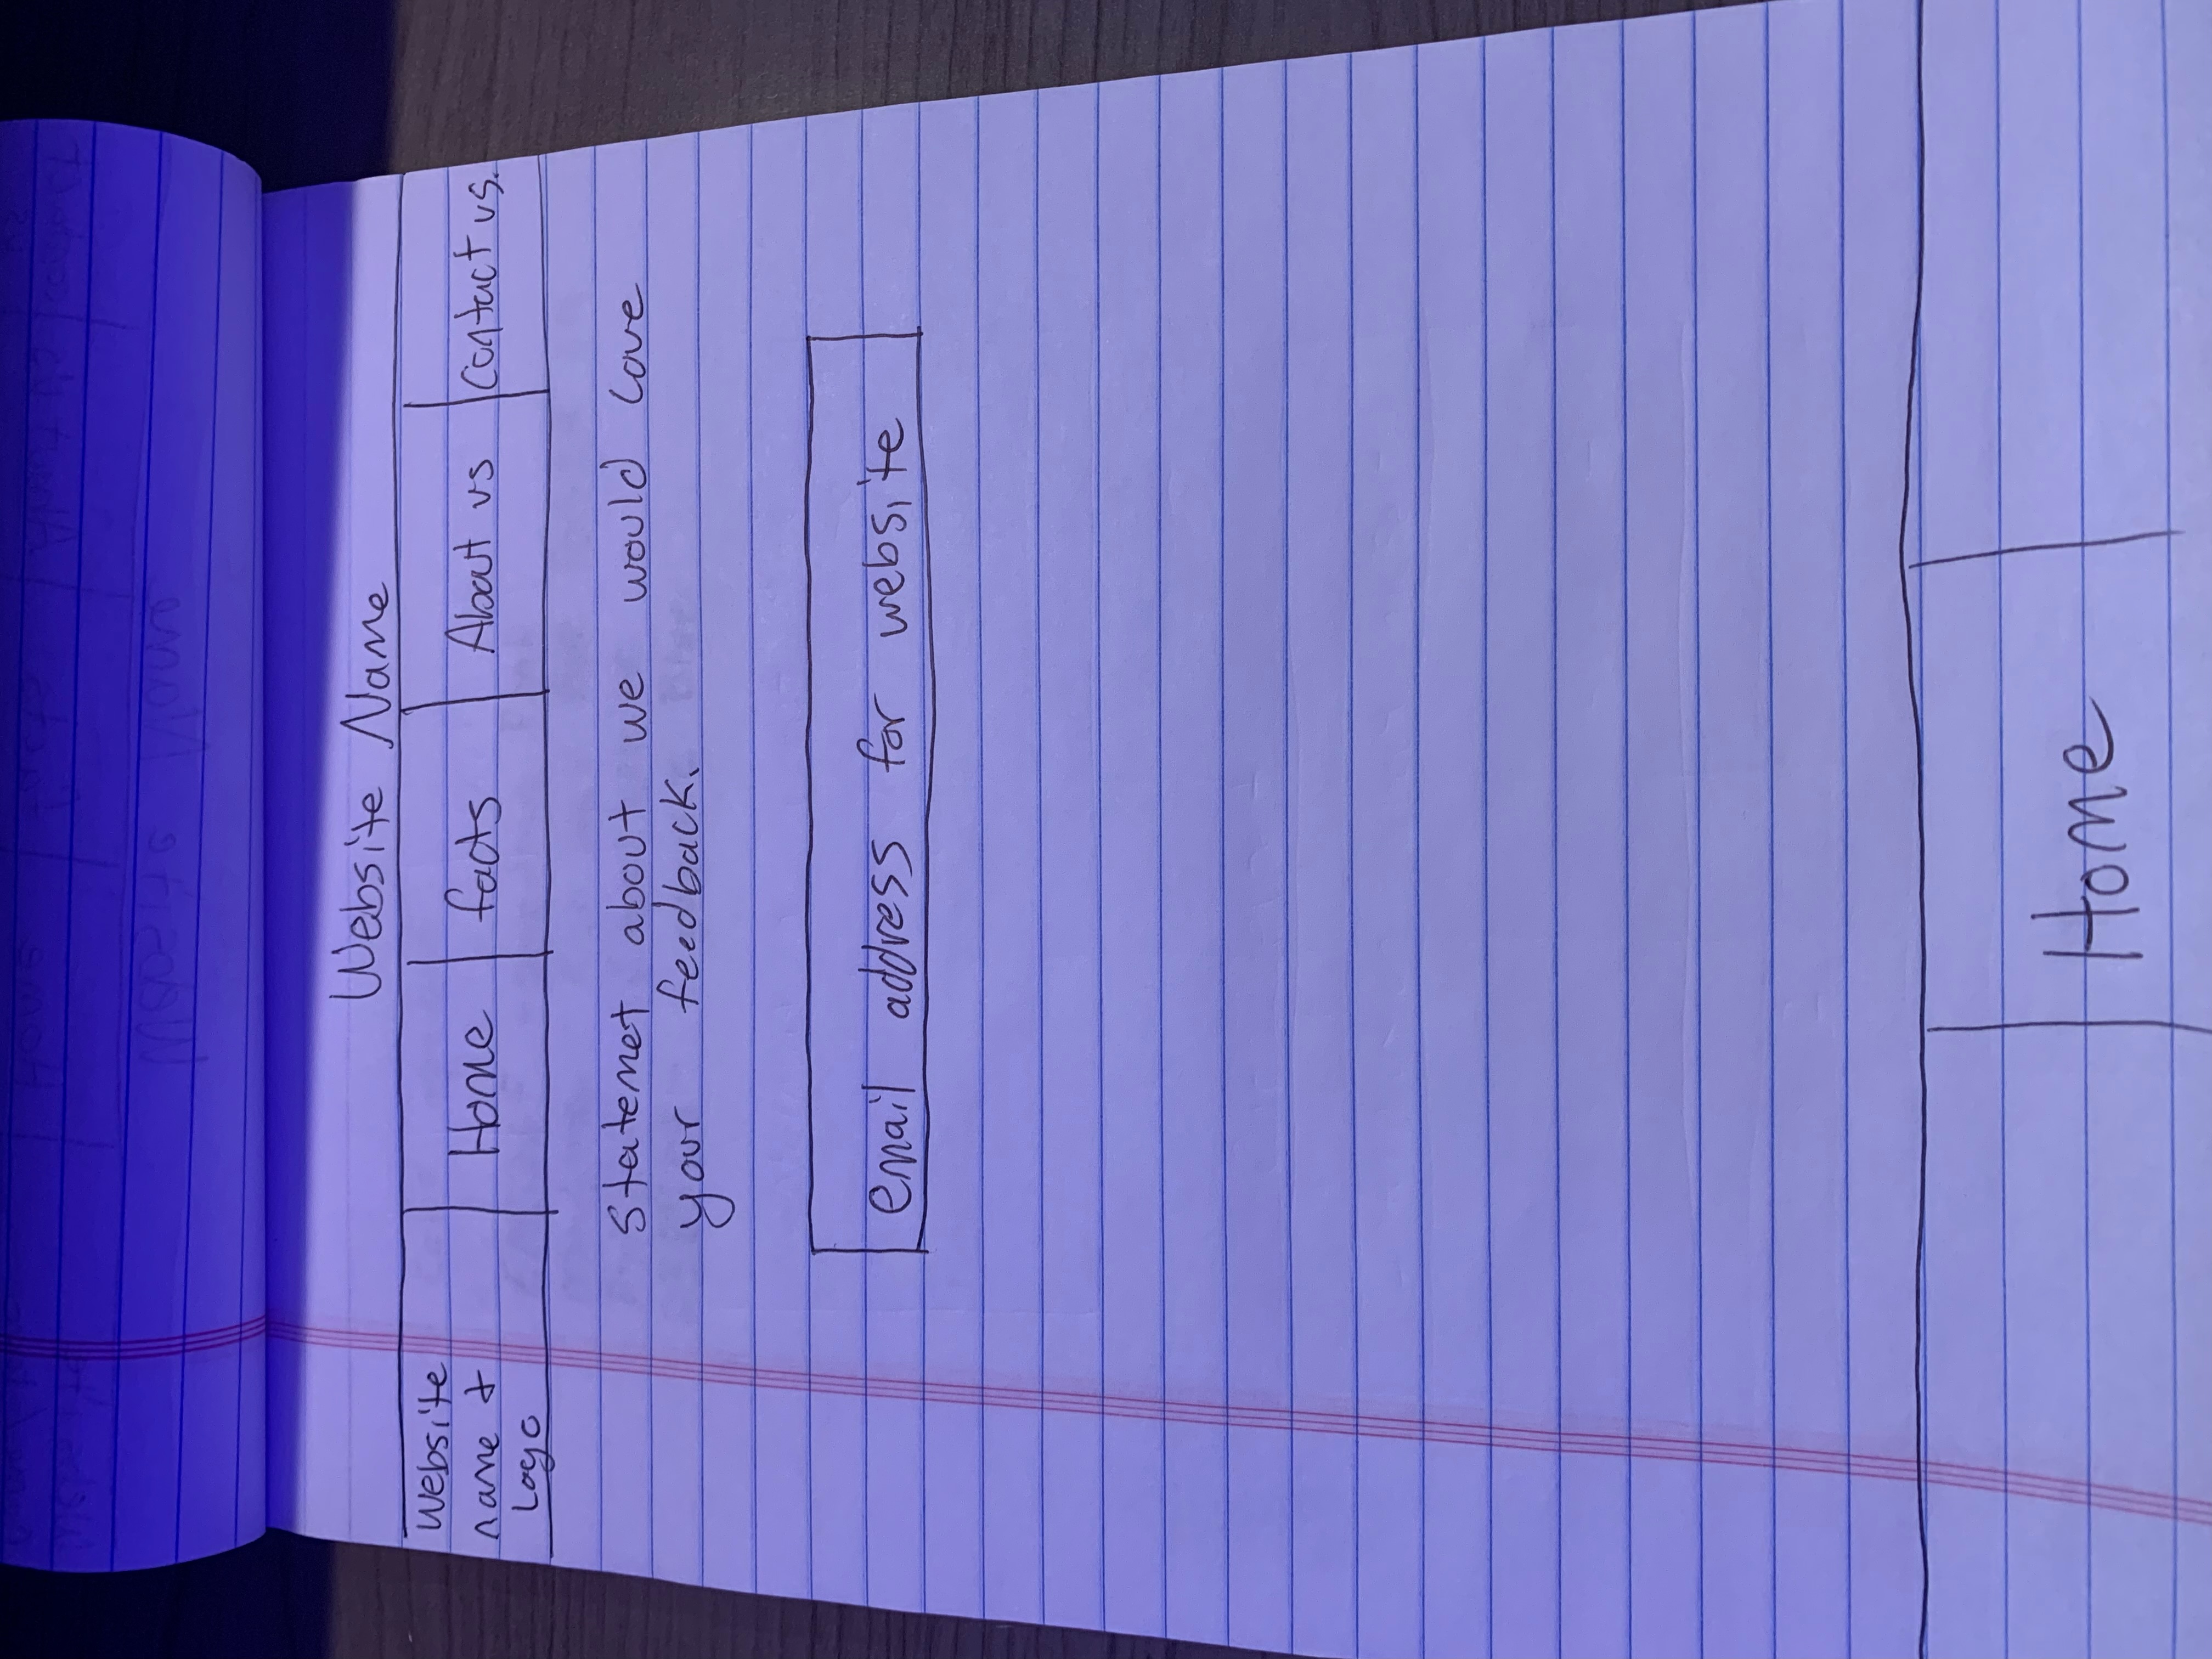 Website Name
Website
name &
Logo
Home
facts
About us
contact us.
Statemet about we would love
your feedback.
email address for website
Home